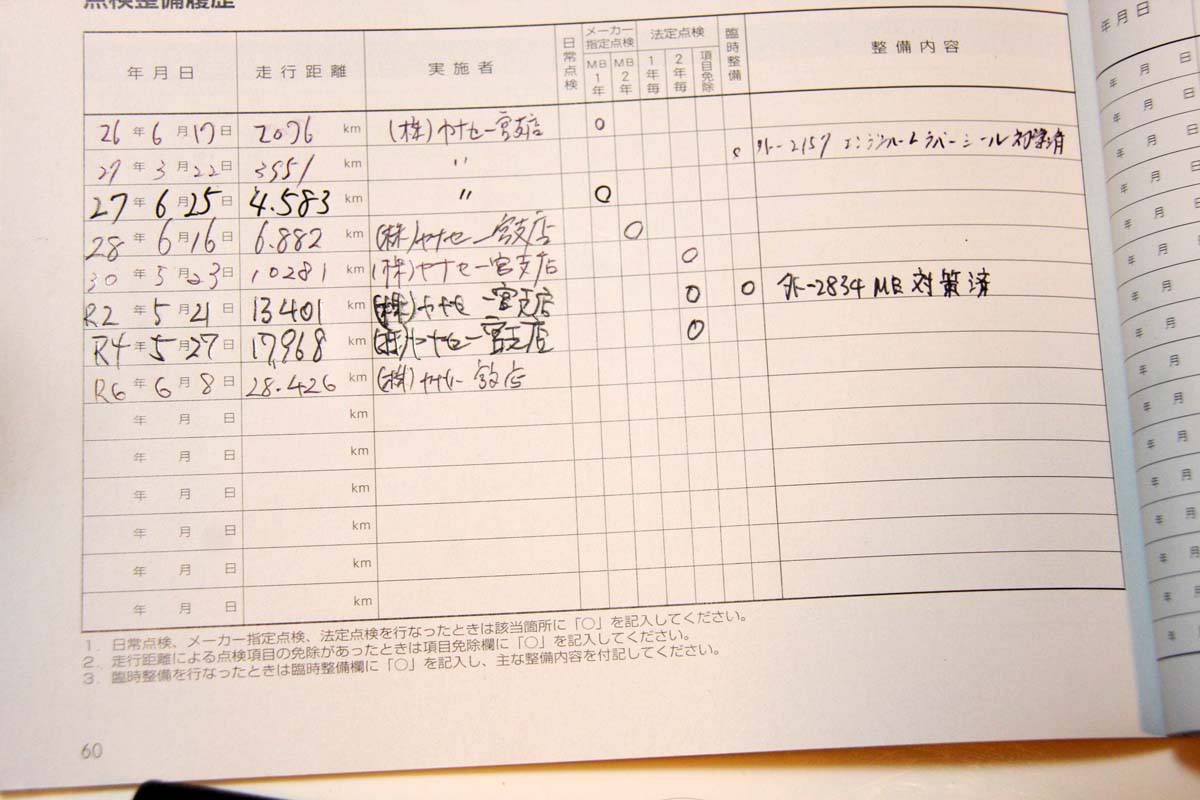 点検整備履歴
年月日 走行距離 実施者 日常点検 メーカー指定点検 MB1年 MB2年 法定点検 1年毎 2年毎 項目免除 臨時整備 整備内容
26年6月17日 2076 km (株)ヤナセ一宮支店 ○
27年3月22日 3951 km 〃 ○ 外-2157 エンジンルームラバーシール対策済
27年6月25日 4.583 km 〃 ○
28年6月16日 6.882 km (株)ヤナセ一宮支店 ○
30年5月23日 10281 km (株)ヤナセ一宮支店 ○
R2年5月21日 13401 km (株)ヤナセ一宮支店 ○ ○ 外-2834 MB対策済
R4年5月27日 17,968 km (株)ヤナセ一宮支店 ○
R6年6月8日 28.426 km (株)ヤナセ一宮支店
年 月 日 km
年 月 日 km
年 月 日 km
年 月 日 km
年 月 日 km
年 月 日 km
1. 日常点検、メーカー指定点検、法定点検を行なったときは該当箇所に「○」を記入してください。
2. 走行距離による点検項目の免除があったときは項目免除欄に「○」を記入してください。
3. 臨時整備を行なったときは臨時整備欄に「○」を記入し、主な整備内容を付記してください。
60
年月日
年 月 日
年 月 日
年 月 日
年 月 日
年 月 日
年 月 日
年 月 日
年 月 日
年 月 日
年 月 日
年 月 日
年 月 日
年 月
年 月